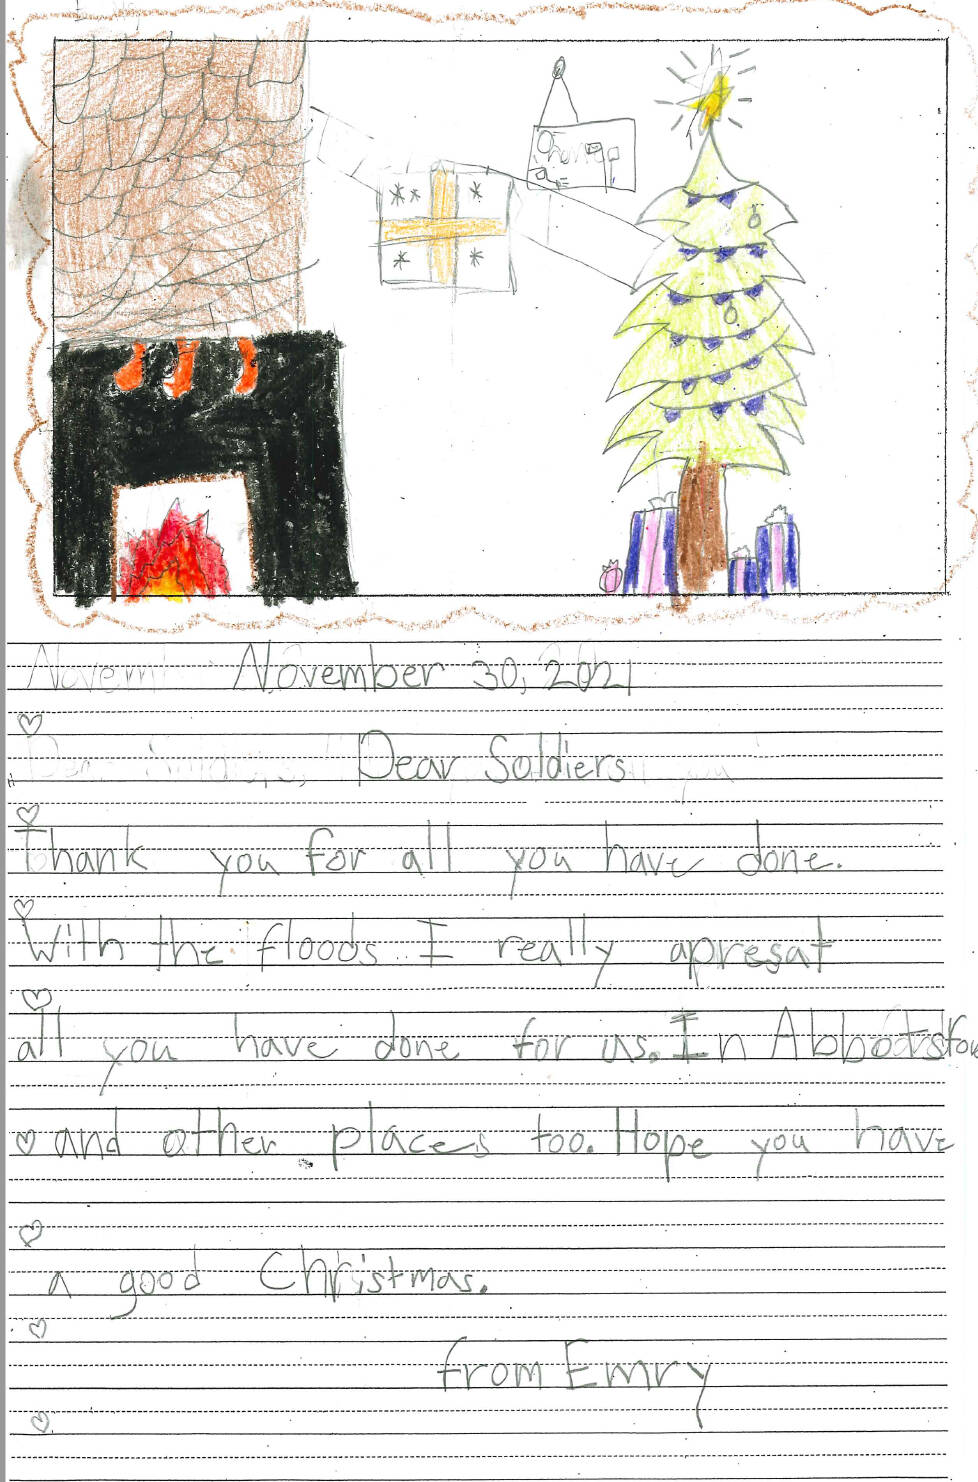 November 30, 2021
Dear Soldiers
Thank you for all you have done.
With the floods I really apresat
all you have done for us. In Abbotsfo
and other places too. Hope you have
a good Christmas.
from Emry